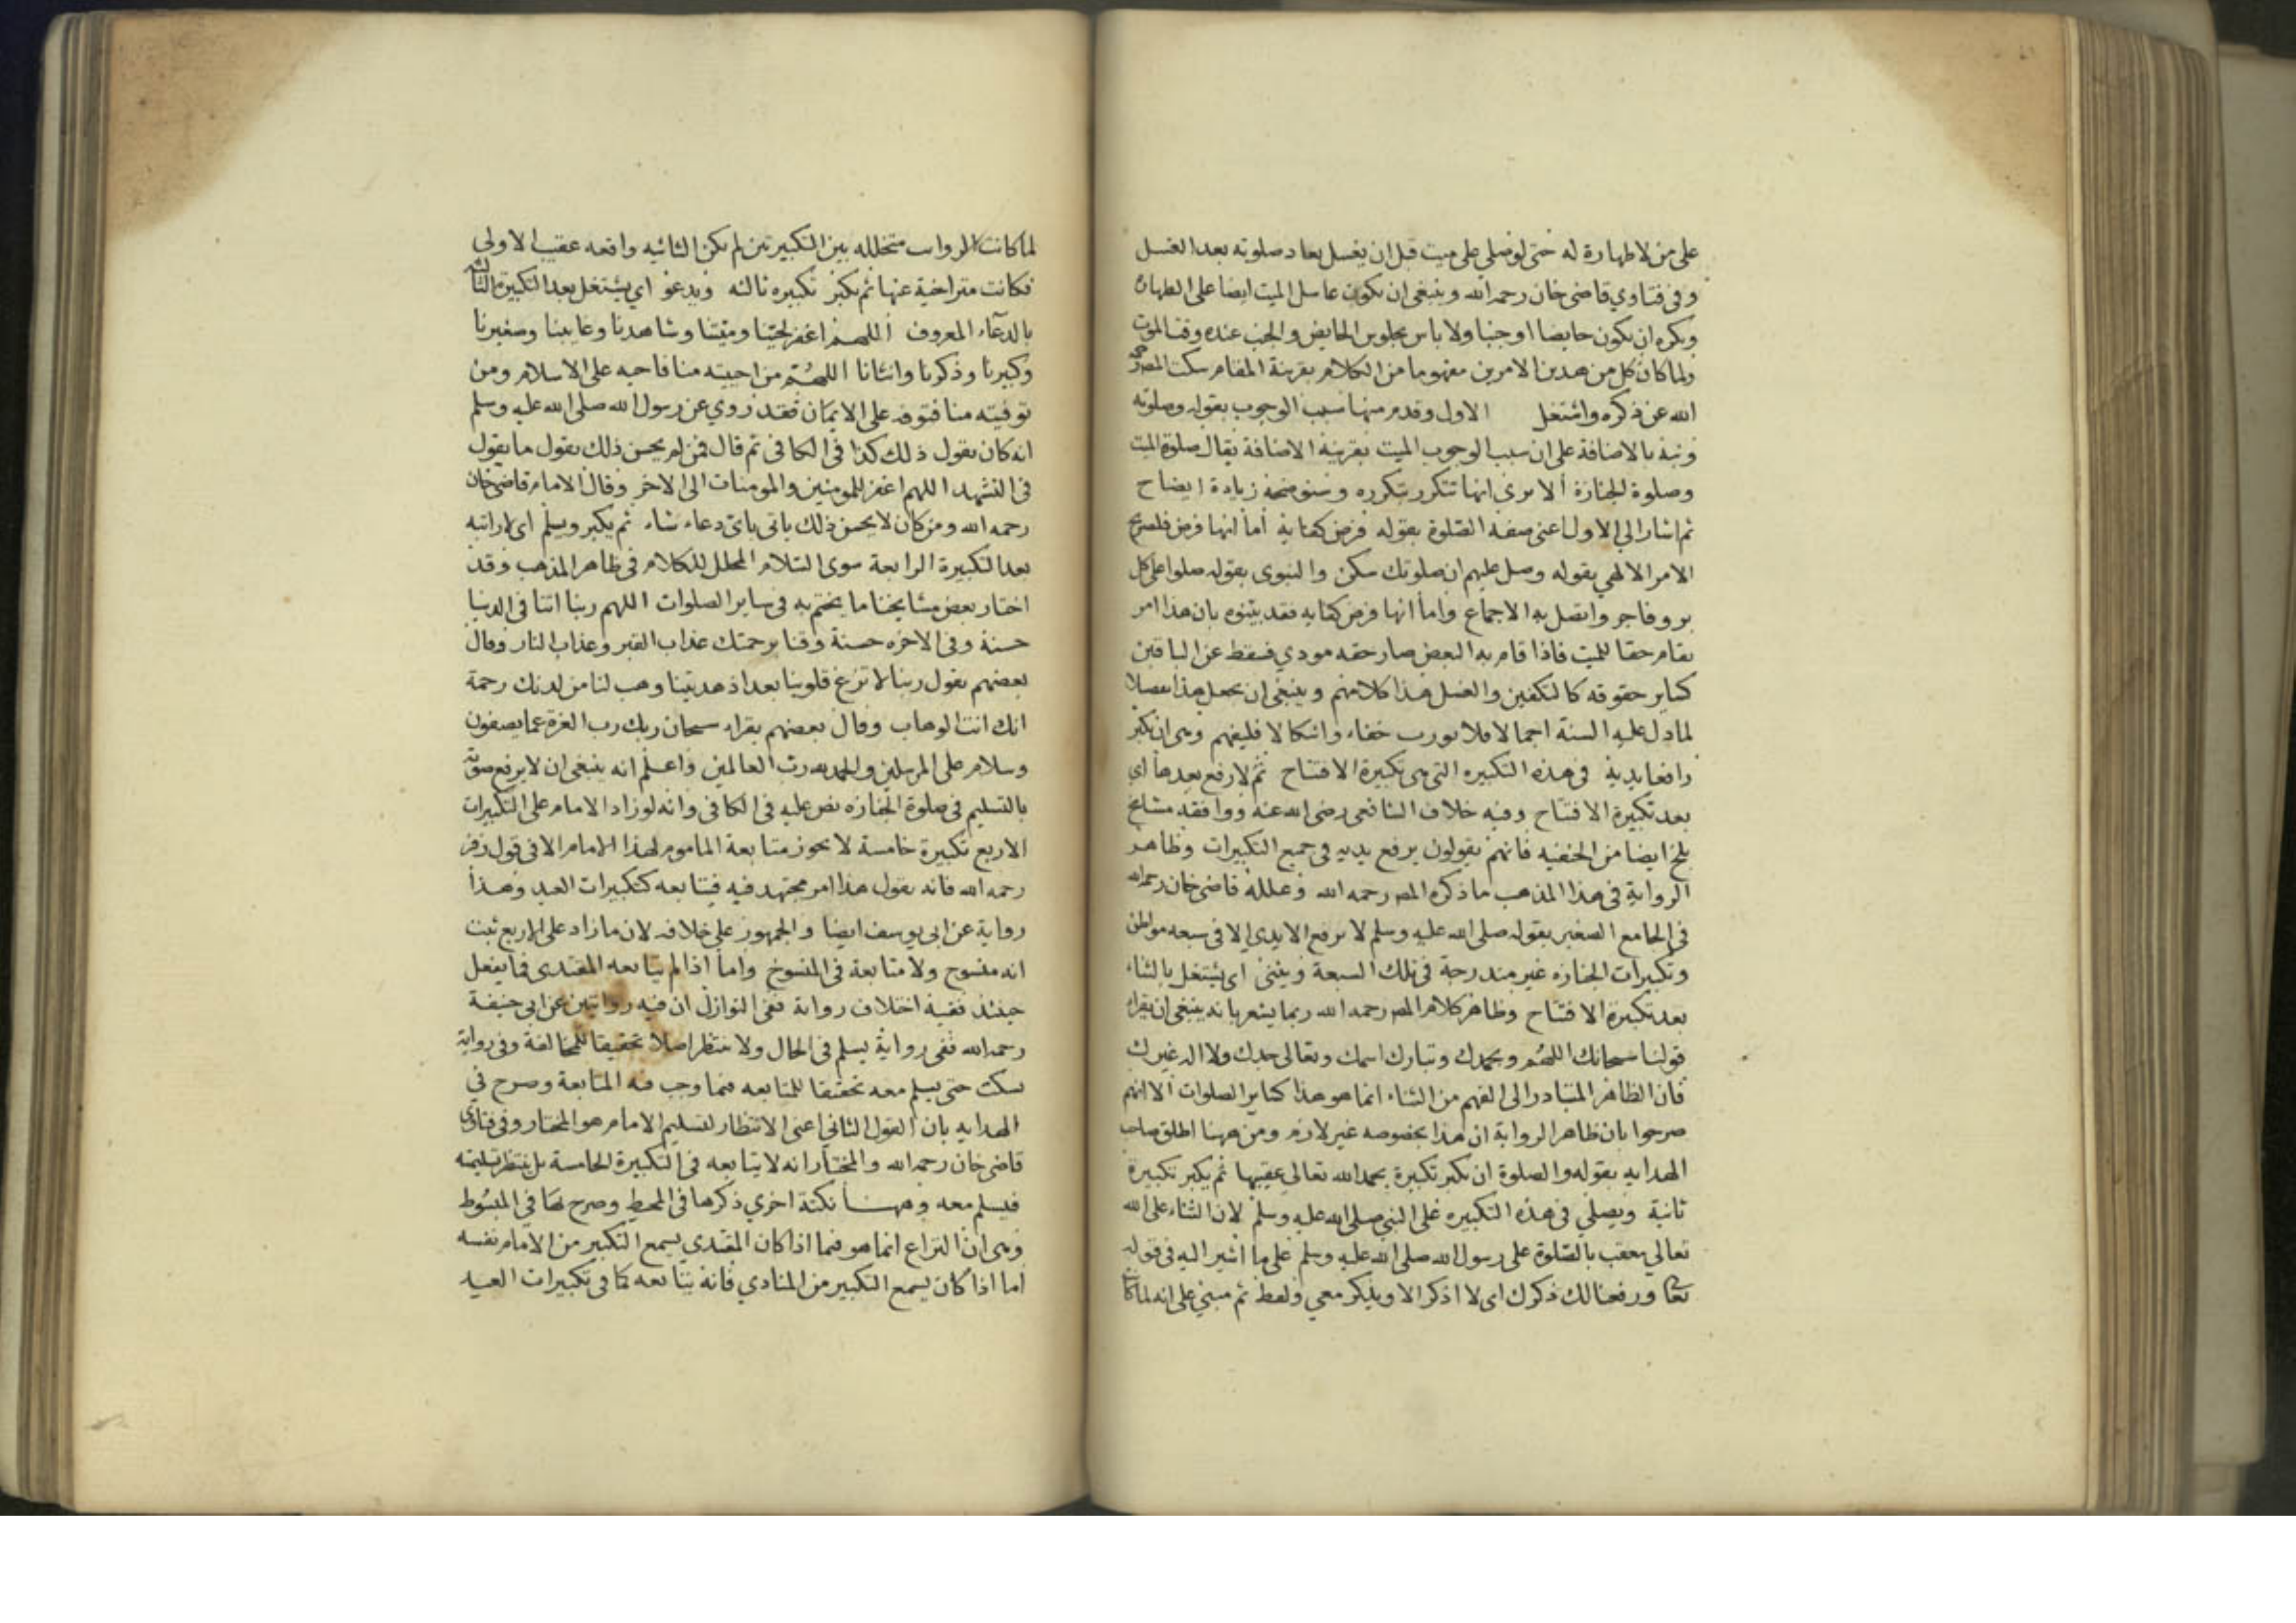 على من لا طهارة له حتى لو صلى على ميت قبل ان يغسل يعاد صلوته بعد الغسل
وفى فتاوي قاضى خان رحمه الله وينبغى ان يكون غاسل الميت ايضا على الطهارة
ويكره ان يكون حايضا او جنبا ولا باس بجلوس الحايض والجنب عنده وقت الموت
ولما كان كل من هدين الامرين مفهوما من الكلام بقرينة المقام سكت المصر رحمه
الله عن ذكره واشتغل الاول وقدم منها سبب الوجوب بقوله وصلوته
ونبه بالاضافة على ان سبب الوجوب الميت بقرينة الاضافة يقال صلوة الميت
وصلوة الجنازة ألا يرى انها تتكرر بتكرره وسنوضحه زيادة ايضاح
ثم اشار الي الاول اعنى صفة الصلوة بقوله فرض كفاية أما انها فرض فلصريح
الامر الالهي بقوله وصل عليهم ان صلوتك سكن والنبوى بقوله صلوا على كل
بر وفاجر واتصل به الاجماع واما انها فرض كفايه فقد بينوه بان هذا امر
يقام حقا للميت فاذا قام به البعض صار حقه مودي فسقط عن الباقين
كساير حقوقه كالتكفين والغسل هذا كلامهم وينبغى ان يجعل هذا تفصيلا
لما دل عليه السنة اجمالا فلا يورب خفاء واشكالا فليفهم وهى ان يكبر
رافعا يديه فى هذه التكبيره التى هى تكبيرة الافتتاح ثم لا رفع بعدها اى
بعد تكبيرة الافتتاح وفيه خلاف الشافعى رضى الله عنه ووافقه مشايخ
بلخ ايضا من الحنفيه فانهم يقولون يرفع يديه فى جميع التكبيرات وظاهر
الرواية فى هذا المذهب ما ذكره المص رحمه الله وعلله قاضى خان رحمه الله
فى الجامع الصغير بقوله صلى الله عليه وسلم لا يرفع الايدى الا فى سبعه مواطن
وتكبيرات الجنازه غير مندرجة فى تلك السبعة ويثنى اى يشتغل بالثناء
بعد تكبيرة الافتتاح وظاهر كلام المص رحمه الله ربما يشعر بانه ينبغى ان يقراء
قولنا سبحانك اللهم وبحمدك وتبارك اسمك وتعالى جدك ولا اله غيرك
فان الظاهر المتبادر الى الفهم من الثناء انما هو هذا كساير الصلوات ألا انهم
صرحوا بان ظاهر الرواية ان هذا بخصوصه غير لازم ومن ههنا اطلق صاحب
الهدايه بقوله والصلوة ان يكبر تكبيرة يحمد الله تعالى عقيبها ثم يكبر تكبيرة
ثانية ويصلي فى هذه التكبيره على النبي صلى الله عليه وسلم لان الثناء على الله
تعالي يعقب بالصلوة على رسول الله صلى الله عليه وسلم على ما اشير اليه فى قوله
تعا ورفعنا لك ذكرك اى لا اذكر الا ويذكر معي ولفظ ثم مبني على انه لما كا
لما كانت الرواب متخلله بين التكبيرتين لم يكن الثانيه واقعه عقيب الاولى
فكانت متراخية عنها ثم يكبر تكبيره ثالثه ويدعو اى يشتغل بعد التكبيرة الثالثه
بالدعاء المعروف اللهم اغفر لحينا وميتنا وشاهدنا وغايبنا وصغيرنا
وكبيرنا وذكرنا وانثانا اللهم من احييته منا فاحيه على الاسلام ومن
توفيته منا فتوفه على الايمان فقد روي عن رسول الله صلى الله عليه وسلم
انه كان يقول ذلك كذا فى الكافى ثم قال فمن لم يحسن ذلك يقول ما يقول
فى التشهد اللهم اغفر للمومنين والمومنات الى الاخر وقال الامام قاضى خان
رحمه الله ومن كان لا يحسن ذلك ياتى باى دعاء شاء ثم يكبر ويسلم اى
بعد التكبيرة الرابعة سوى السلام المحلل للكلام فى ظاهر المذهب وقد
اختار بعض مشايخنا ما يختم به فى ساير الصلوات اللهم ربنا اتنا فى الدنيا
حسنة وفى الاخره حسنة وقنا برحمتك عذاب القبر وعذاب النار وقال
بعضهم يقول ربنا لا تزغ قلوبنا بعد اذ هديتنا وهب لنا من لدنك رحمة
انك انت الوهاب وقال بعضهم يقراء سبحان ربك رب العزة عما يصفون
وسلام على المرسلين والحمد لله رب العالمين واعلم انه ينبغى ان لا يرفع صوته
بالتسليم فى صلوة الجنازه نص عليه فى الكافى وانه لو زاد الامام على التكبيرات
الاربع تكبيرة خامسة لا يجوز متابعة الماموم لهذا الامام الا فى قول زفر
رحمه الله فانه يقول هذا امر مجتهد فيه فيتابعه كتكبيرات العيد وهذا
رواية عن ابى يوسف ايضا والجمهور على خلافه لان ما زاد على الاربع ثبت
انه منسوخ ولا متابعة فى المنسوخ واما اذا لم يتابعه المقتدى فما يفعل
حينئذ ففيه اختلاف رواية ففى النوازل ان فيه روايتين عن ابى حنيفة
رحمه الله ففى رواية يسلم فى الحال ولا ينتظر اصلا تحقيقا للمخالفة وفى رواية
يسكت حتى يسلم معه تحقيقا للمتابعه فيما وجب فيه المتابعة وصرح في
الهدايه بان القول الثانى اعنى الانتظار لتسليم الامام هو المختار وفى فتاوى
قاضى خان رحمه الله والمختار انه لا يتابعه فى التكبيرة الخامسة بل ينتظر تسليمه
فيسلم معه وههنا نكتة اخري ذكرها فى المحيط وصرح بها فى المبسوط
وهى ان النزاع انما هو فيما اذا كان المقتدي يسمع التكبير من الامام نفسه
اما اذا كان يسمع التكبير من المنادي فانه يتابعه كما فى تكبيرات العيد